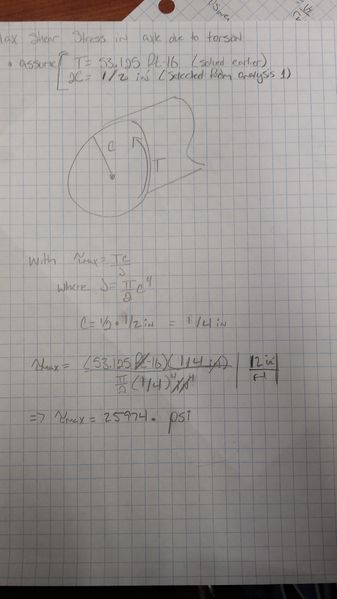 Max Shear Stress in axle due to torsion
• assume T = 53.125 ft-lb (solved earlier)
2C = 1/2 in (selected from analysis 1)
C
T
with τmax = Tc/J
where J = π/2 c⁴
C = 1/2 · 1/2 in = 1/4 in
τmax = (53.125 ft-lb)(1/4 in) | 12 in
π/2 (1/4)⁴ in⁴ | ft
=> τmax = 25974. psi